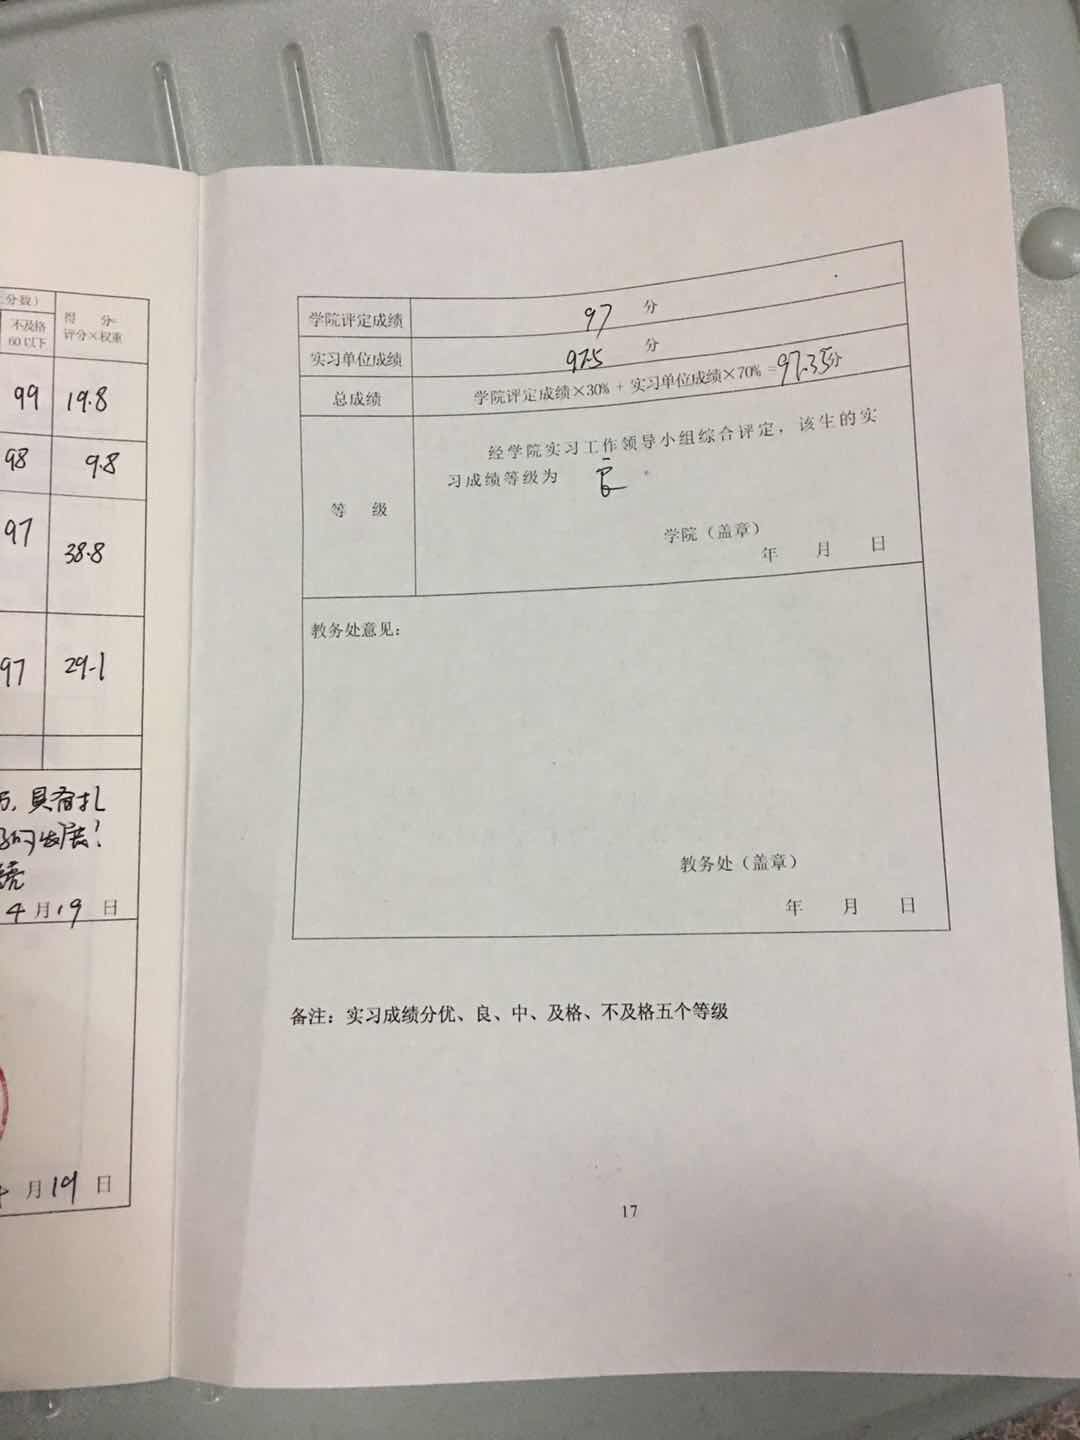 分数）
不及格
60以下
得 分=
评分×权重
99 19.8
98 9.8
97 38.8
97 29.1
具备扎
发展！
4月19日
月19日
学院评定成绩 97 分
实习单位成绩 97.5 分
总成绩 学院评定成绩×30% + 实习单位成绩×70% =97.35分
等 级
经学院实习工作领导小组综合评定，该生的实
习成绩等级为 良 。
学院（盖章）
年 月 日
教务处意见：
教务处（盖章）
年 月 日
备注：实习成绩分优、良、中、及格、不及格五个等级
17